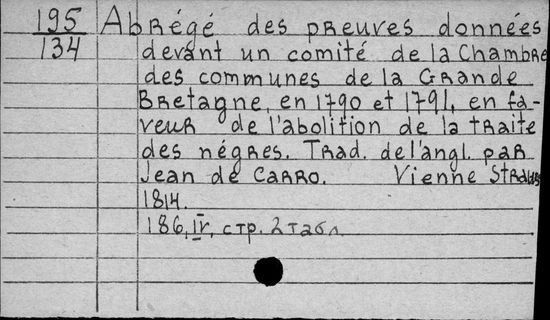 195 Abrégé des preuves données
134 devant un comité de la Chambre
des communes de la Grande
Bretagne, en 1790 et 1791, en fa-
veur de l'abolition de la traite
des négres. Trad. de l'angl. par
Jean de Carro. Vienne
1814.
186, IV, стр. 2 табл.